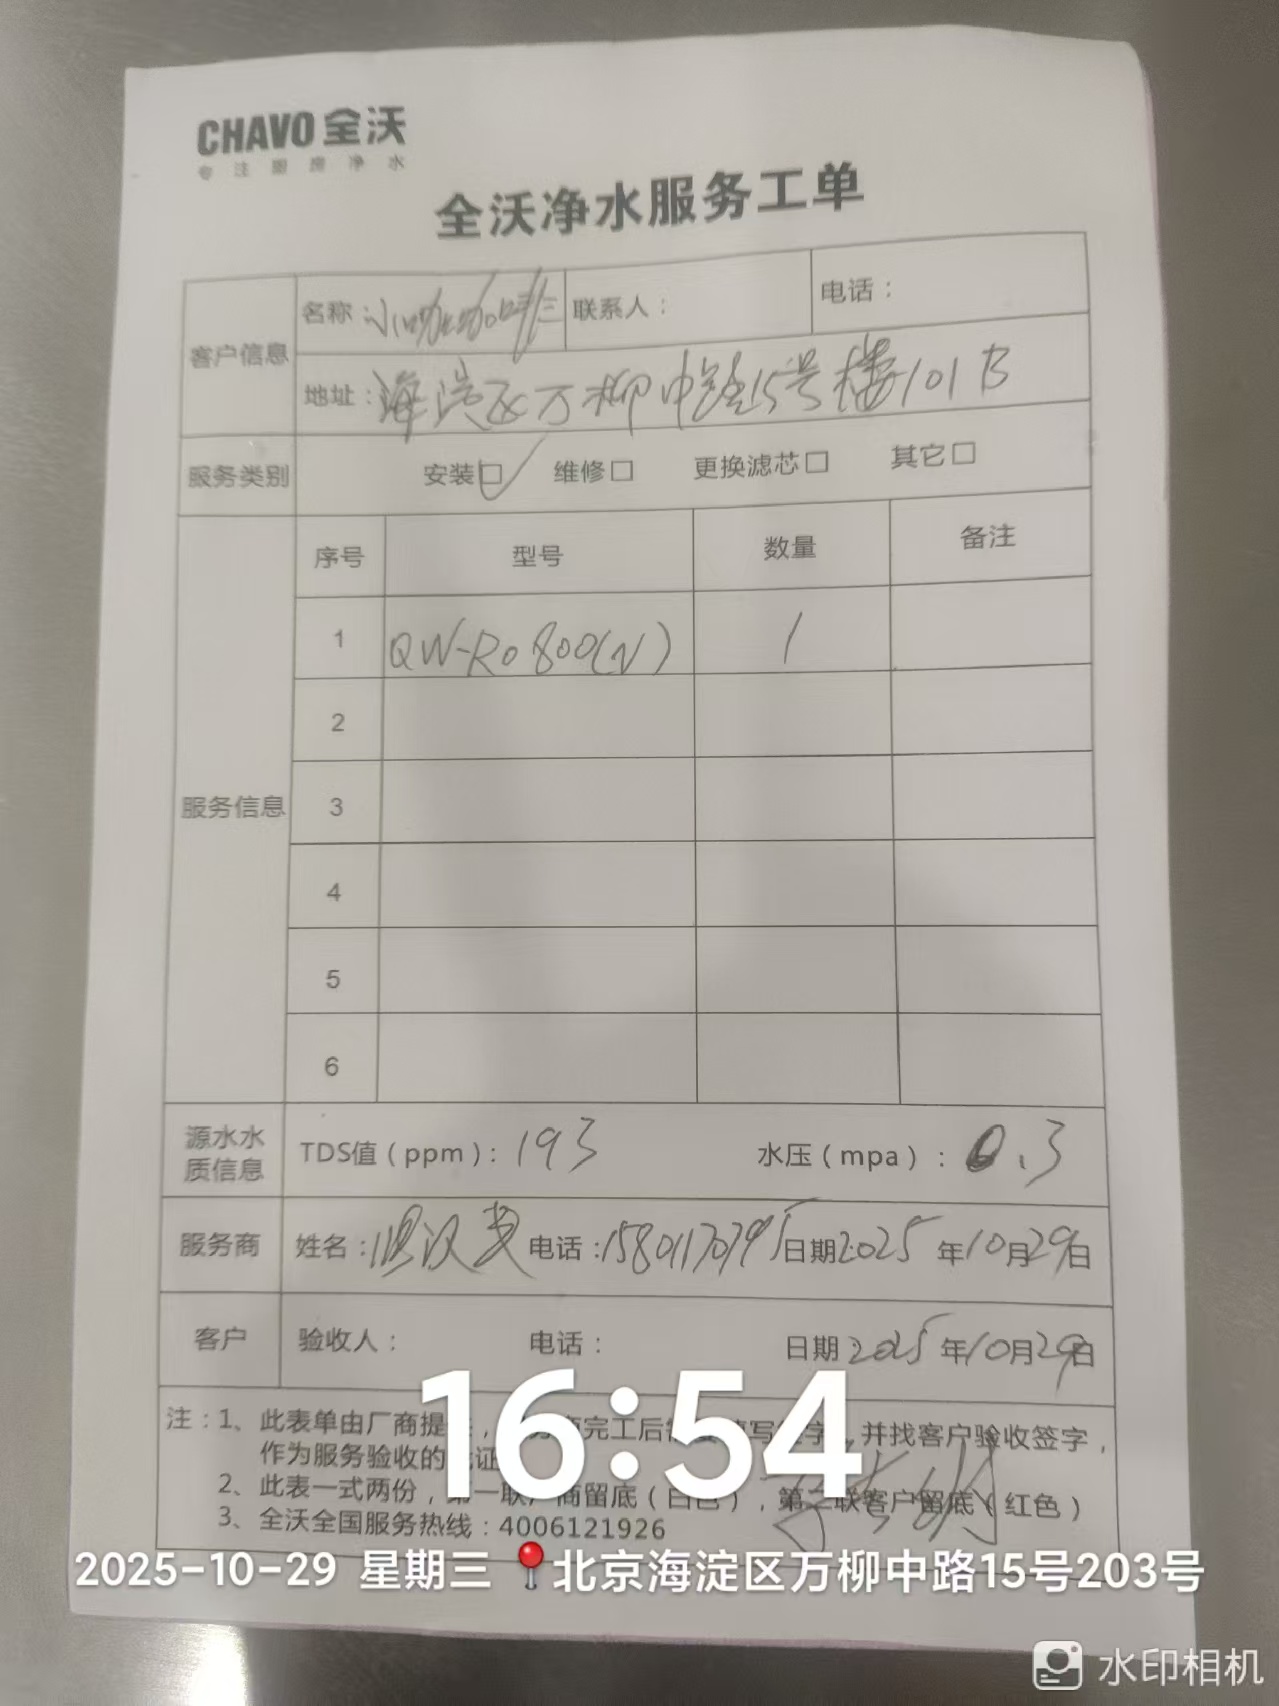 CHAVO 全沃
专注厨房净水
全沃净水服务工单
客户信息
名称：小咖咖啡 联系人： 电话：
地址：海淀区万柳中路15号楼101B
服务类别 安装☑ 维修□ 更换滤芯□ 其它□
服务信息
序号 型号 数量 备注
1 QW-RO800(N) 1
2
3
4
5
6
源水水质信息 TDS值（ppm）：193 水压（mpa）：0.3
服务商 姓名： 电话： 日期2025年10月29日
客户 验收人： 电话： 日期2025年10月29日
注：1、此表单由厂商提 完工后 写 字，并找客户验收签字，
作为服务验收的 证
2、此表一式两份，第一联厂商留底（白色），第二联客户留底（红色）
3、全沃全国服务热线：4006121926
16:54
2025-10-29 星期三 北京海淀区万柳中路15号203号
水印相机